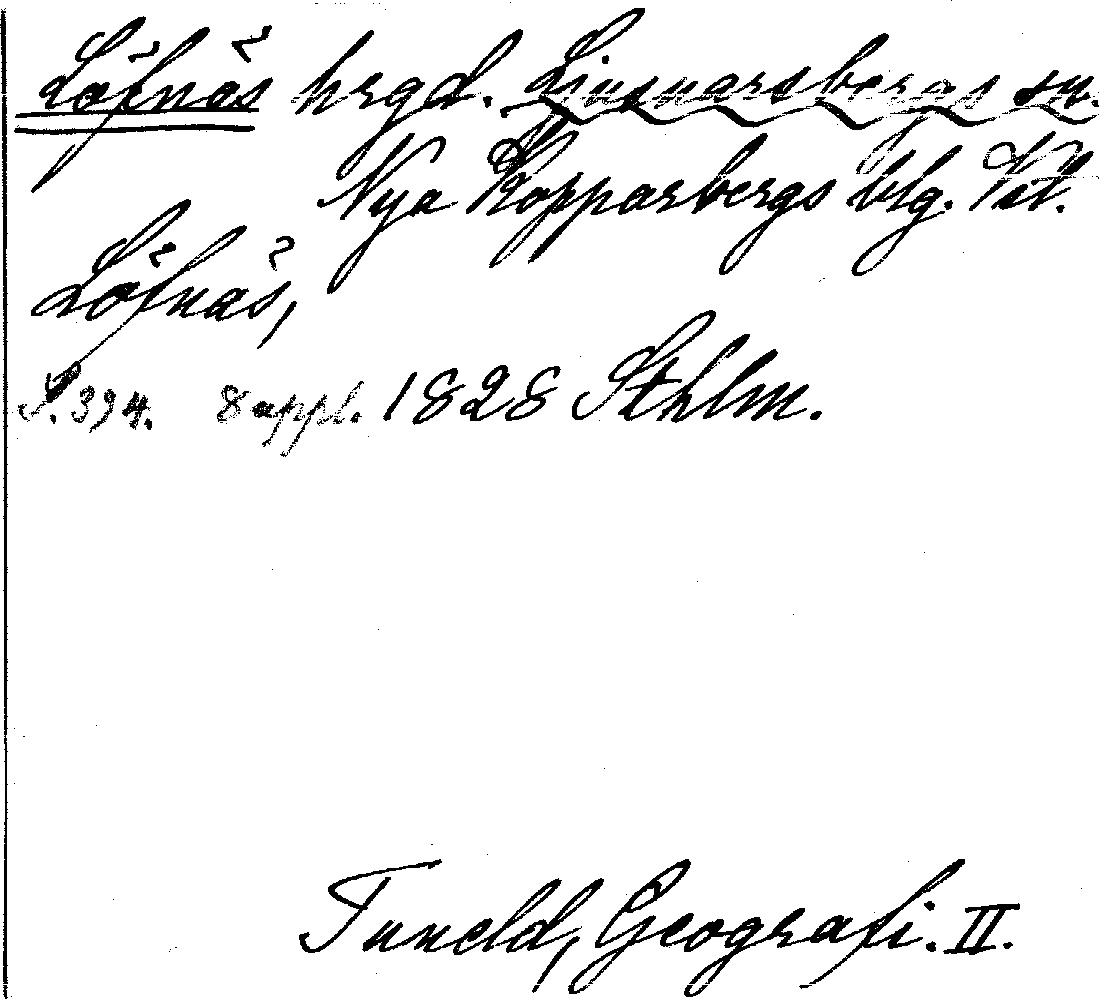 Löfnäs hrgd. Ljusnarsbergs sn.
Nya Kopparbergs blg. Vet.
Löfnäs,
S. 394. 8 uppl. 1828 Sthlm.
Tuneld, Geografi. II.